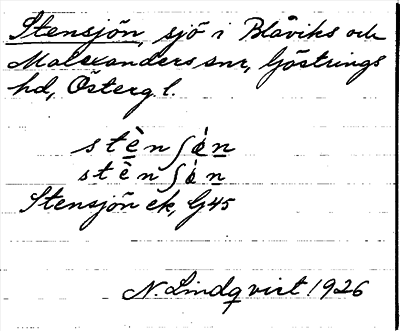 Stensjön, sjö i Blåviks och
Malexanders snr, Göstrings
hd, Östergl.
stè̲nʃὼ̲n̲
stè̲nʃὼn̲
Stensjön ek, G45
N. Lindqvist 1926